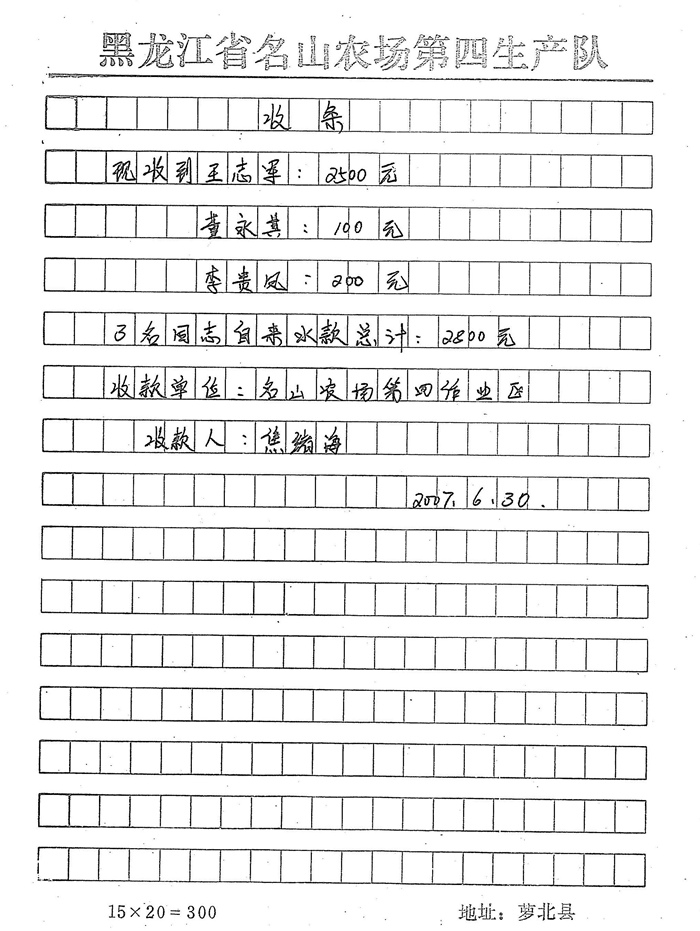 黑龙江省名山农场第四生产队
收条
现收到王志军：2500元
董永其：100元
李贵凤：200元
3名同志自来水款总计：2800元
收款单位：名山农场第四作业区
收款人：焦绪海
2007.6.30.
15×20=300 地址：萝北县